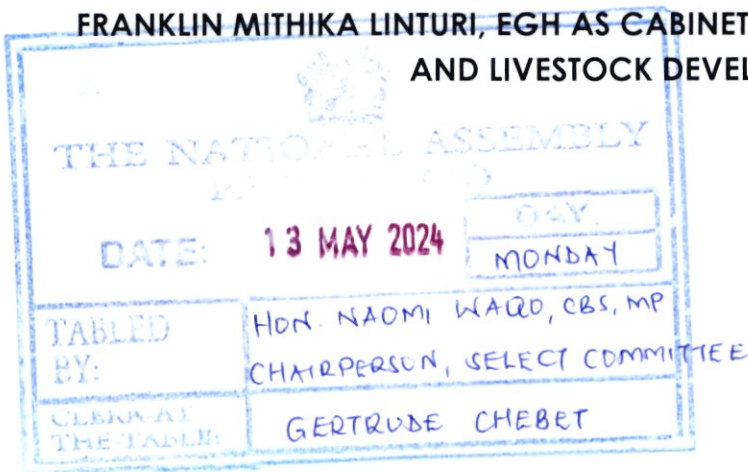 FRANKLIN MITHIKA LINTURI, EGH AS CABINET
AND LIVESTOCK DEVEL
THE NATIONAL ASSEMBLY
DATE: 13 MAY 2024
DAY.
MONDAY
TABLED
BY:
HON. NAOMI WAQO, CBS, MP
CHAIRPERSON, SELECT COMMITTEE
CLERK-AT
THE-TABLE:
GERTRUDE CHEBET